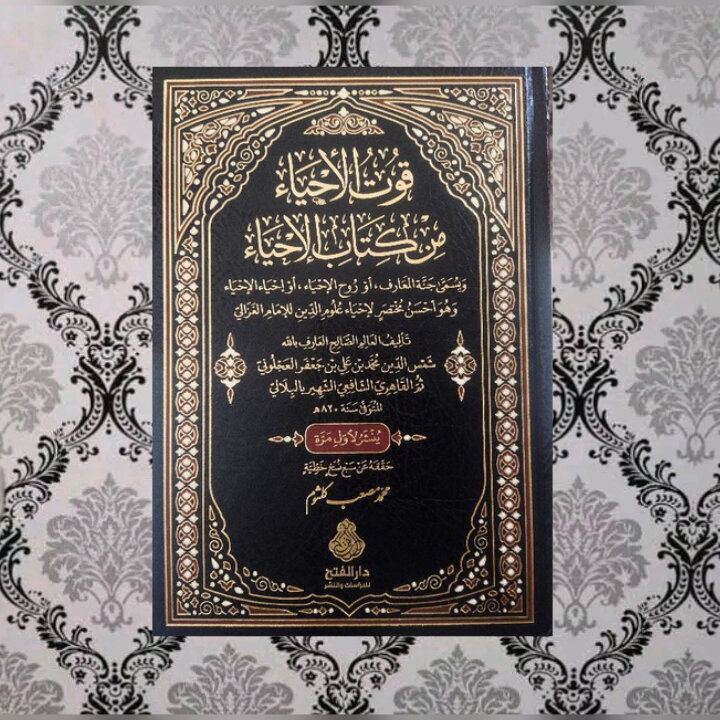 قُوتُ الأَحْيَاءِ
مِنْ كِتَابِ الإِحْيَاءِ
وَيُسَمَّى جَنَّة المَعَارِف، أَوْ رُوح الإِحْيَاء، أَوْ إِحْيَاء الإِحْيَاء
وَهُوَ أَحْسَنُ مُخْتَصَرٍ لِإِحْيَاء عُلُومِ الدِّينِ لِلإِمَامِ الغَزَالِيّ
تَأْلِيفُ العَالِمِ الصَّالِحِ العَارِفِ بِاللهِ
شَمْسِ الدِّينِ مُحَمَّد بْنِ عَلِيِّ بْنِ جَعْفَرٍ العَجْلُونِيِّ
ثُمَّ القَاهِرِيِّ الشَّافِعِيِّ الشَّهِيرِ بِالبِلَالِيِّ
المُتَوَفَّى سَنَة ٨٢٠هـ
يُنْشَرُ لِأَوَّلِ مَرَّة
حَقَّقَهُ عَنْ سَبْعِ نُسَخٍ خَطِّيَّةٍ
محمد مصعب كلثوم
دار الفتح
للدراسات والنشر